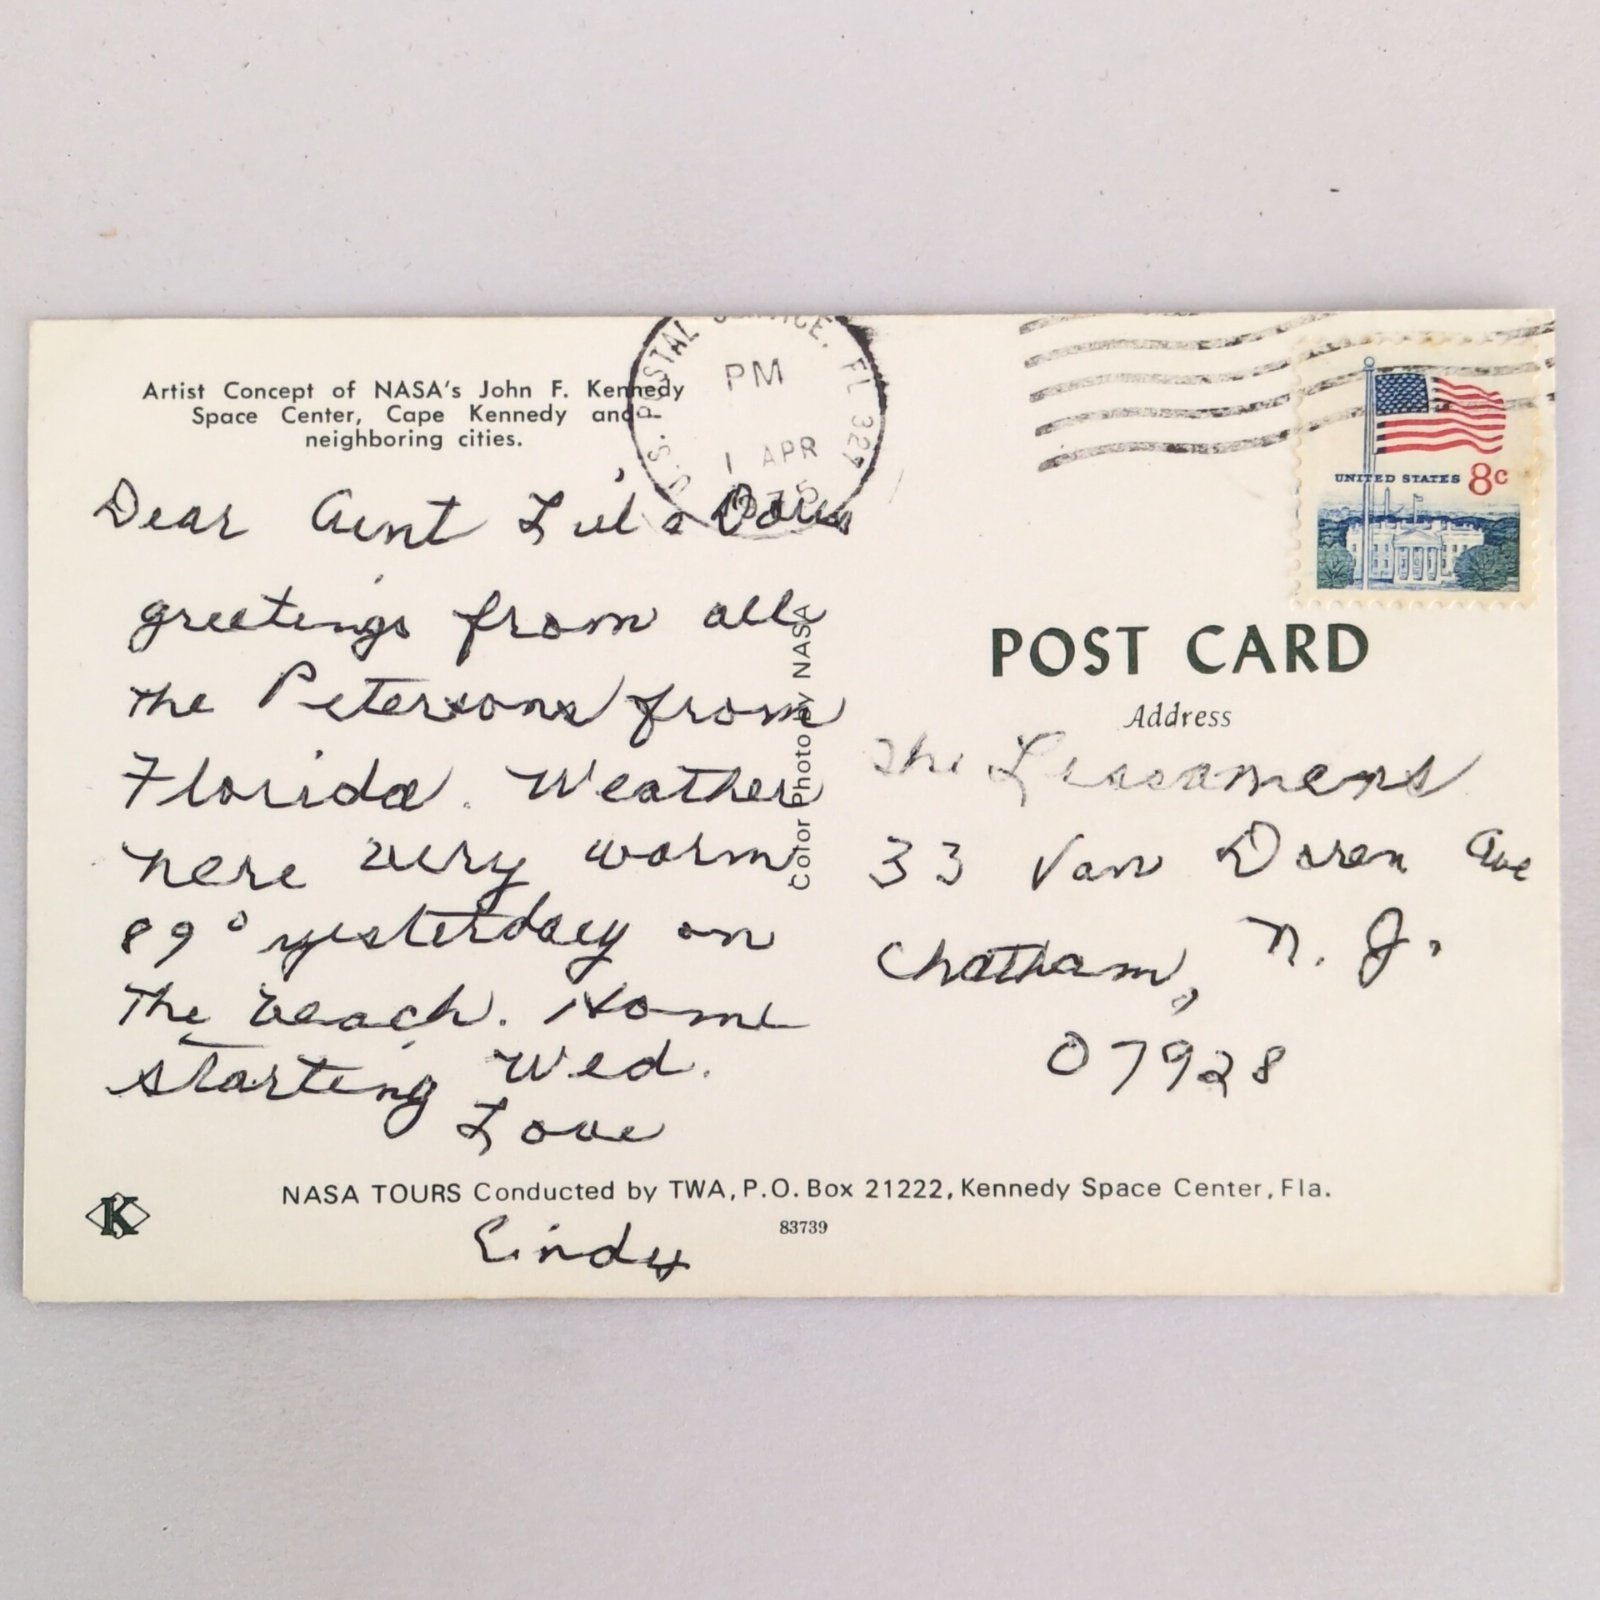 Artist Concept of NASA's John F. Kennedy
Space Center, Cape Kennedy and
neighboring cities.
U.S. POSTAL SERVICE, FL 327
PM
1 APR
1975
UNITED STATES 8c
Dear Aunt Lil &
greetings from all
the Petersons from
Florida. Weather
here very warm
89° yesterday on
the beach. Home
starting Wed.
Love
Cindy
Color Photo by NASA
POST CARD
Address
The
33 Van Doren Ave
Chatham, N. J.
07928
NASA TOURS Conducted by TWA, P.O. Box 21222, Kennedy Space Center, Fla.
K
83739